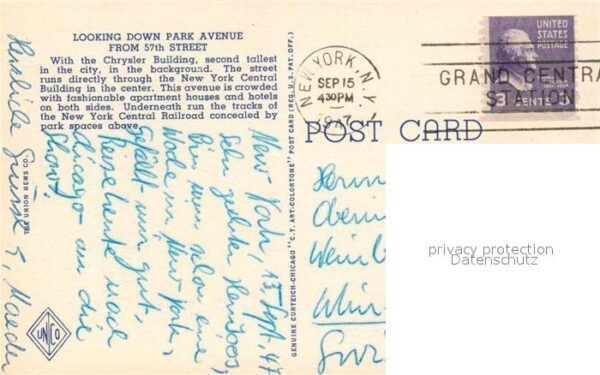 LOOKING DOWN PARK AVENUE
FROM 57th STREET
With the Chrysler Building, second tallest
in the city, in the background. The street
runs directly through the New York Central
Building in the center. This avenue is crowded
with fashionable apartment houses and hotels
on both sides. Underneath run the tracks of
the New York Central Railroad concealed by
park spaces above.
THE UNION NEWS CO.
UNCO
GENUINE CURTEICH-CHICAGO "C.T. ART-COLORTONE" POST CARD (REG. U.S. PAT. OFF.)
POST CARD
NEW YORK, N.Y.
SEP 15
430PM
1947
GRAND CENTRA
STATION
UNITED
STATES
POSTAGE
3 CENTS
New York, 13. Sept. 47
Sehr geehrter
bin nun schon eine
Woche in New York,
gefällt mir gut,
Reise heute nach
Chicago an die
Show!
Herzliche Grüsse
Herrn
privacy protection
Datenschutz